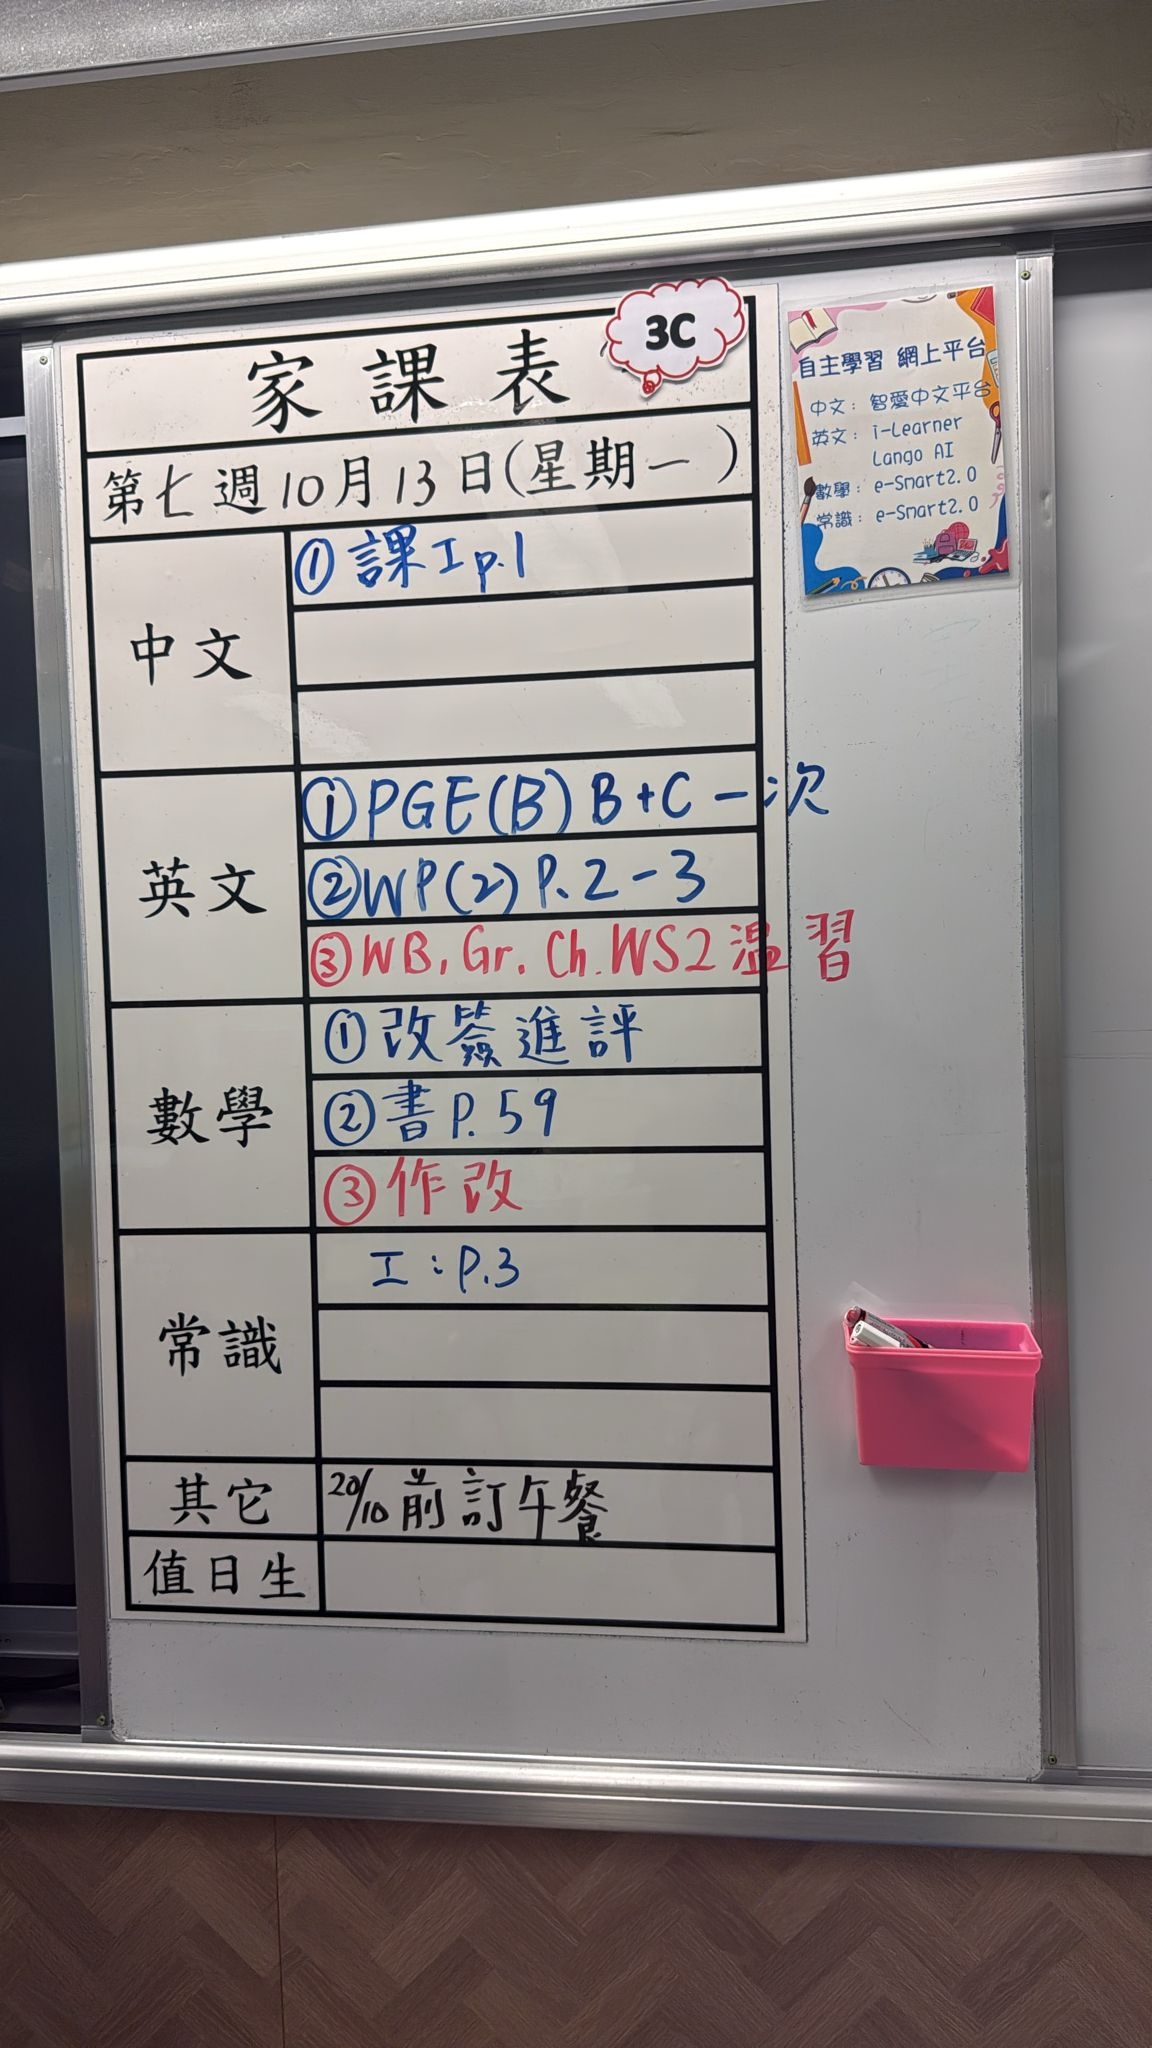 家課表
3C
第七週10月13日(星期一)
中文
① 課工p.1
英文
① PGE(B) B+C 一次
② WP(2) P.2-3
③ WB, Gr. Ch. WS2 溫習
數學
① 改簽進評
② 書P.59
③ 作改
常識
工:P.3
其它
20/10前訂午餐
值日生
自主學習 網上平台
中文: 智愛中文平台
英文: i-Learner
Lango AI
數學: e-Smart2.0
常識: e-Smart2.0